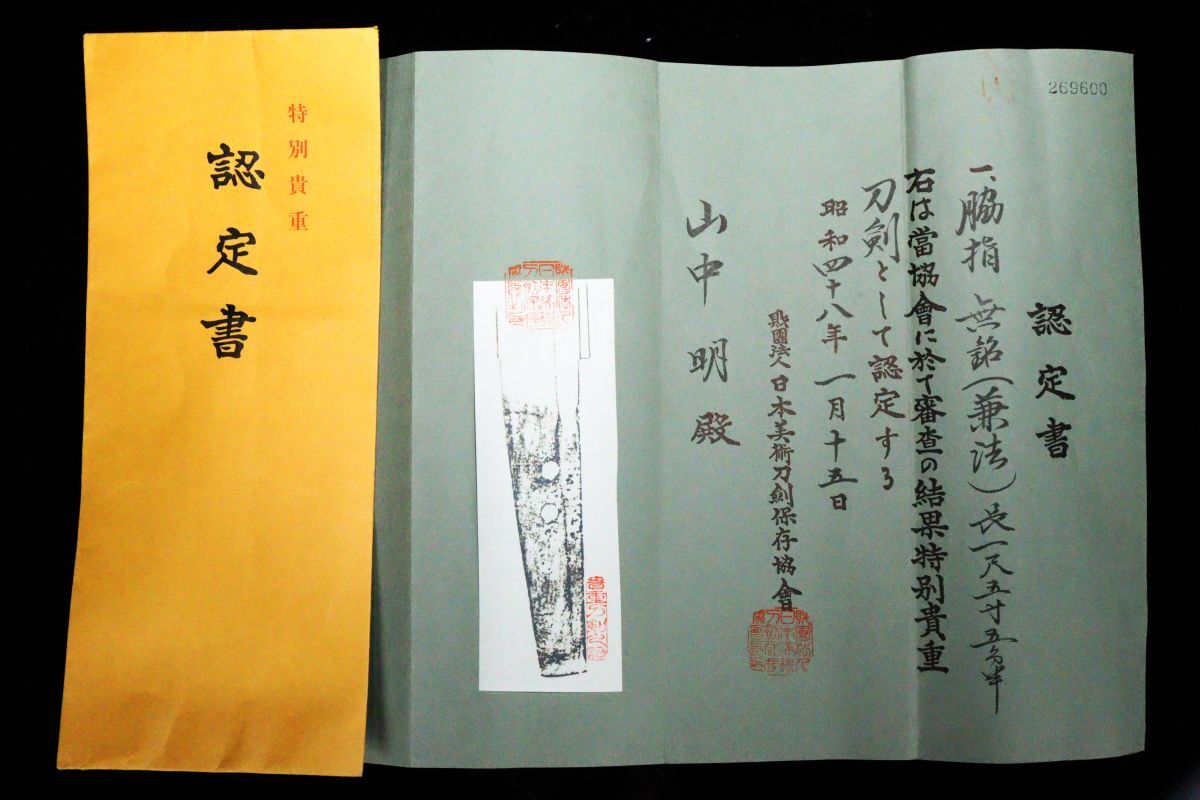 特別貴重
認定書
269600
認定書
一、脇指 無銘(兼法)長一尺五寸五分半
右は當協會に於て審査の結果特別貴重
刀剣として認定する
昭和四十八年一月十五日
財團法人日本美術刀剣保存協會
山中明殿